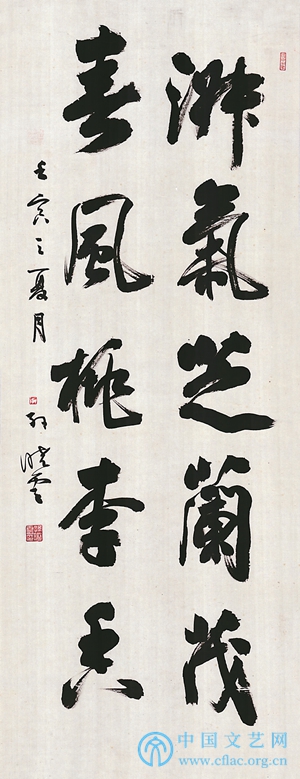 淑氣芝蘭茂
春風桃李香
壬寅之夏月
孫曉雲
中国文艺网
www.cflac.org.cn